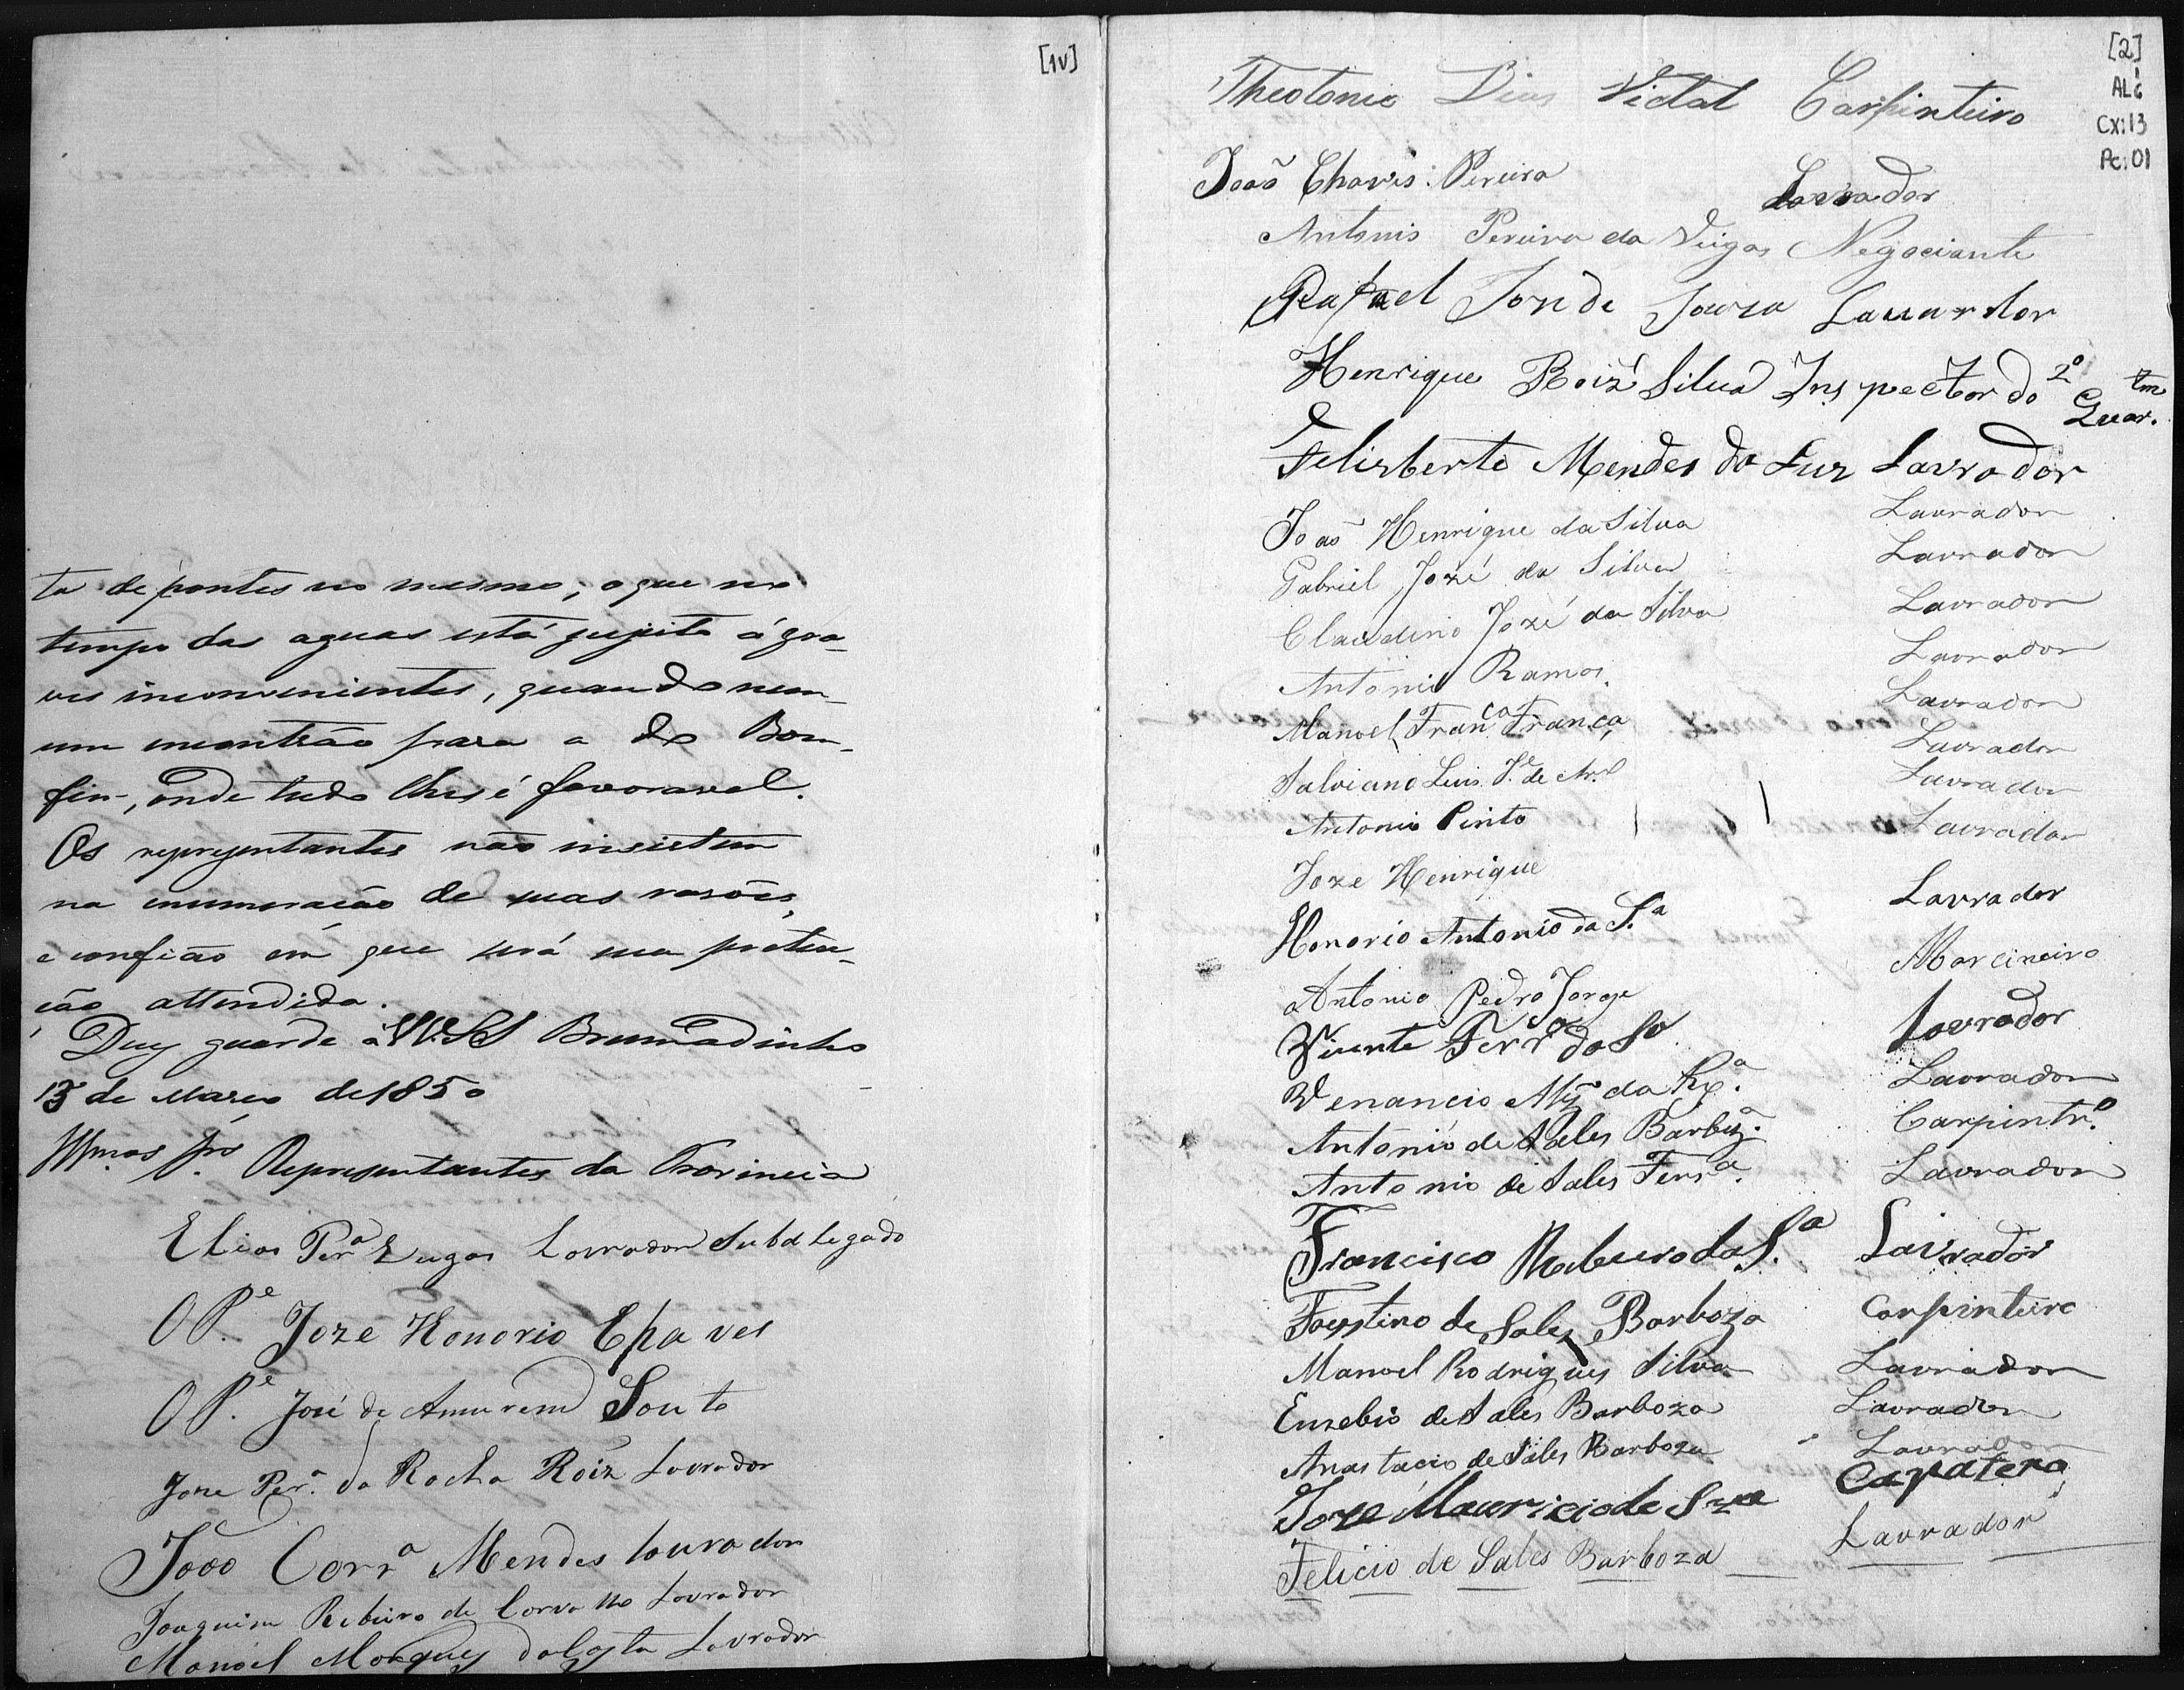 [1v]
ta de pontes no mesmo; o que no
tempo das aguas está sujeito á gra-
ves inconvenientes, quando nem
um encontrão para a do Bom-
fim, onde tudo lhes é favoravel.
Os representantes não insistem
na enumeração de suas rasões,
e confião em que será sua preten-
ção attendida.
Deus guarde á VV. SS Brumadinho
13 de Março de 1850
Illmos Srs Representantes da Provincia
Elias Perª Lugas Lavrador Subdelegado
O Pe. Joze Honorio Chaves
O Pe. José de Souto
Joze Perª da Rocha Roiz Lavrador
Joao Corrª Mendes lavrador
Joaquim Ribeiro de Corvalho Lavrador
Manoel Marques da Costa Lavrador
[2]
AL6
CX:13
Pc:01
Theotonio Dias Vidal Carpinteiro
João Chaves Pereira Lavrador
Antonio Pereira da Veigas Negociante
Rafael Joze de Souza Lavardor
Henrique Roiz Silva Inspector do 2º Quar.tm
Felisberto Mendes da Luz Lavrador
João Henrique da Silva Lavrador
Gabriel Jozé da Silva Lavrador
Claudino Jozé da Silva Lavrador
Antonio Ramos Lavrador
Manoel Franco França Lavrador
Salviano Luis Lavrador
Antonio Pinto Lavrador
Joze Henrique Lavrador
Honorio Antonio da Sª Lavrador
Antonio Pedro Jorge Marcineiro
Vicente Ferrª da Sª Lavrador
Venancio da Lavrador
Antonio de Sales Barbzª Carpintrº
Antonio de Sales Ferrª Lavrador
Francisco Ribeiro da S.ª Lavrador
Faustino de Sales Barboza Carpinteiro
Manoel Rodrigues Silva Lavrador
Euzebio de Sales Barboza Lavrador
Anastacio de Sales Barboza Lavrador
Joze Mauricio de Sza Capatero
Felicio de Sales Barboza Lavrador